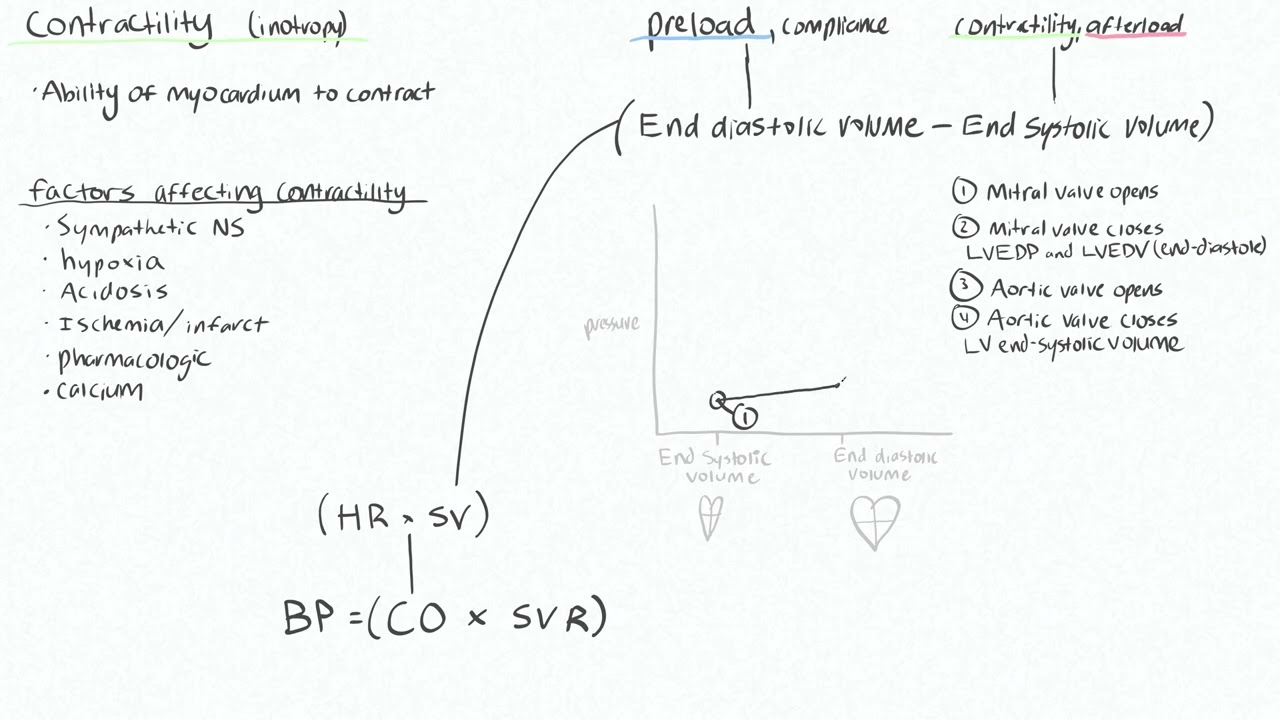 Contractility (inotropy)
· Ability of myocardium to contract
factors affecting contractility
· Sympathetic NS
· hypoxia
· Acidosis
· Ischemia/infarct
· pharmacologic
· calcium
preload, compliance
contractility, afterload
(End diastolic volume - End systolic volume)
① Mitral valve opens
② Mitral valve closes
LVEDP and LVEDV (end-diastole)
③ Aortic valve opens
④ Aortic valve closes
LV end-systolic volume
pressure
①
End systolic
volume
End diastolic
volume
(HR × SV)
BP = (CO × SVR)